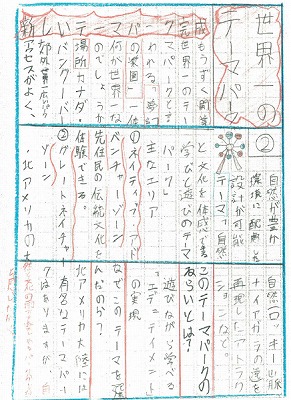 世界一の
テーマパーク
新しいテーマパーク完成
もうすぐ開業
世界一のテー
われる「夢の
楽園」一体
何が世界一な
のでしょうか
場所カナダ・
バンクーバー
アクセスがよく、
②
自然が豊か
環境に配慮
設計が可能
テーマ：自然
と文化を体感できる
学びと遊びのテーマ
パーク
主なエリア
①ネイティブアド
ベンチャーゾーン
先住民の伝統文化を
体験できる。
②グレートネイチャー
ゾーン
・北アメリカの大
自然ロッキー山脈
ナイアガラの滝を
再現したアトラク
ションなど。
このテーマパークの
ねらいとは？
遊びながら学べる
「エデュテイメント」
の実現
なぜこのテーマを選
んだのか？
北アメリカ大陸には
有名なテーマパー
クはありますが、自